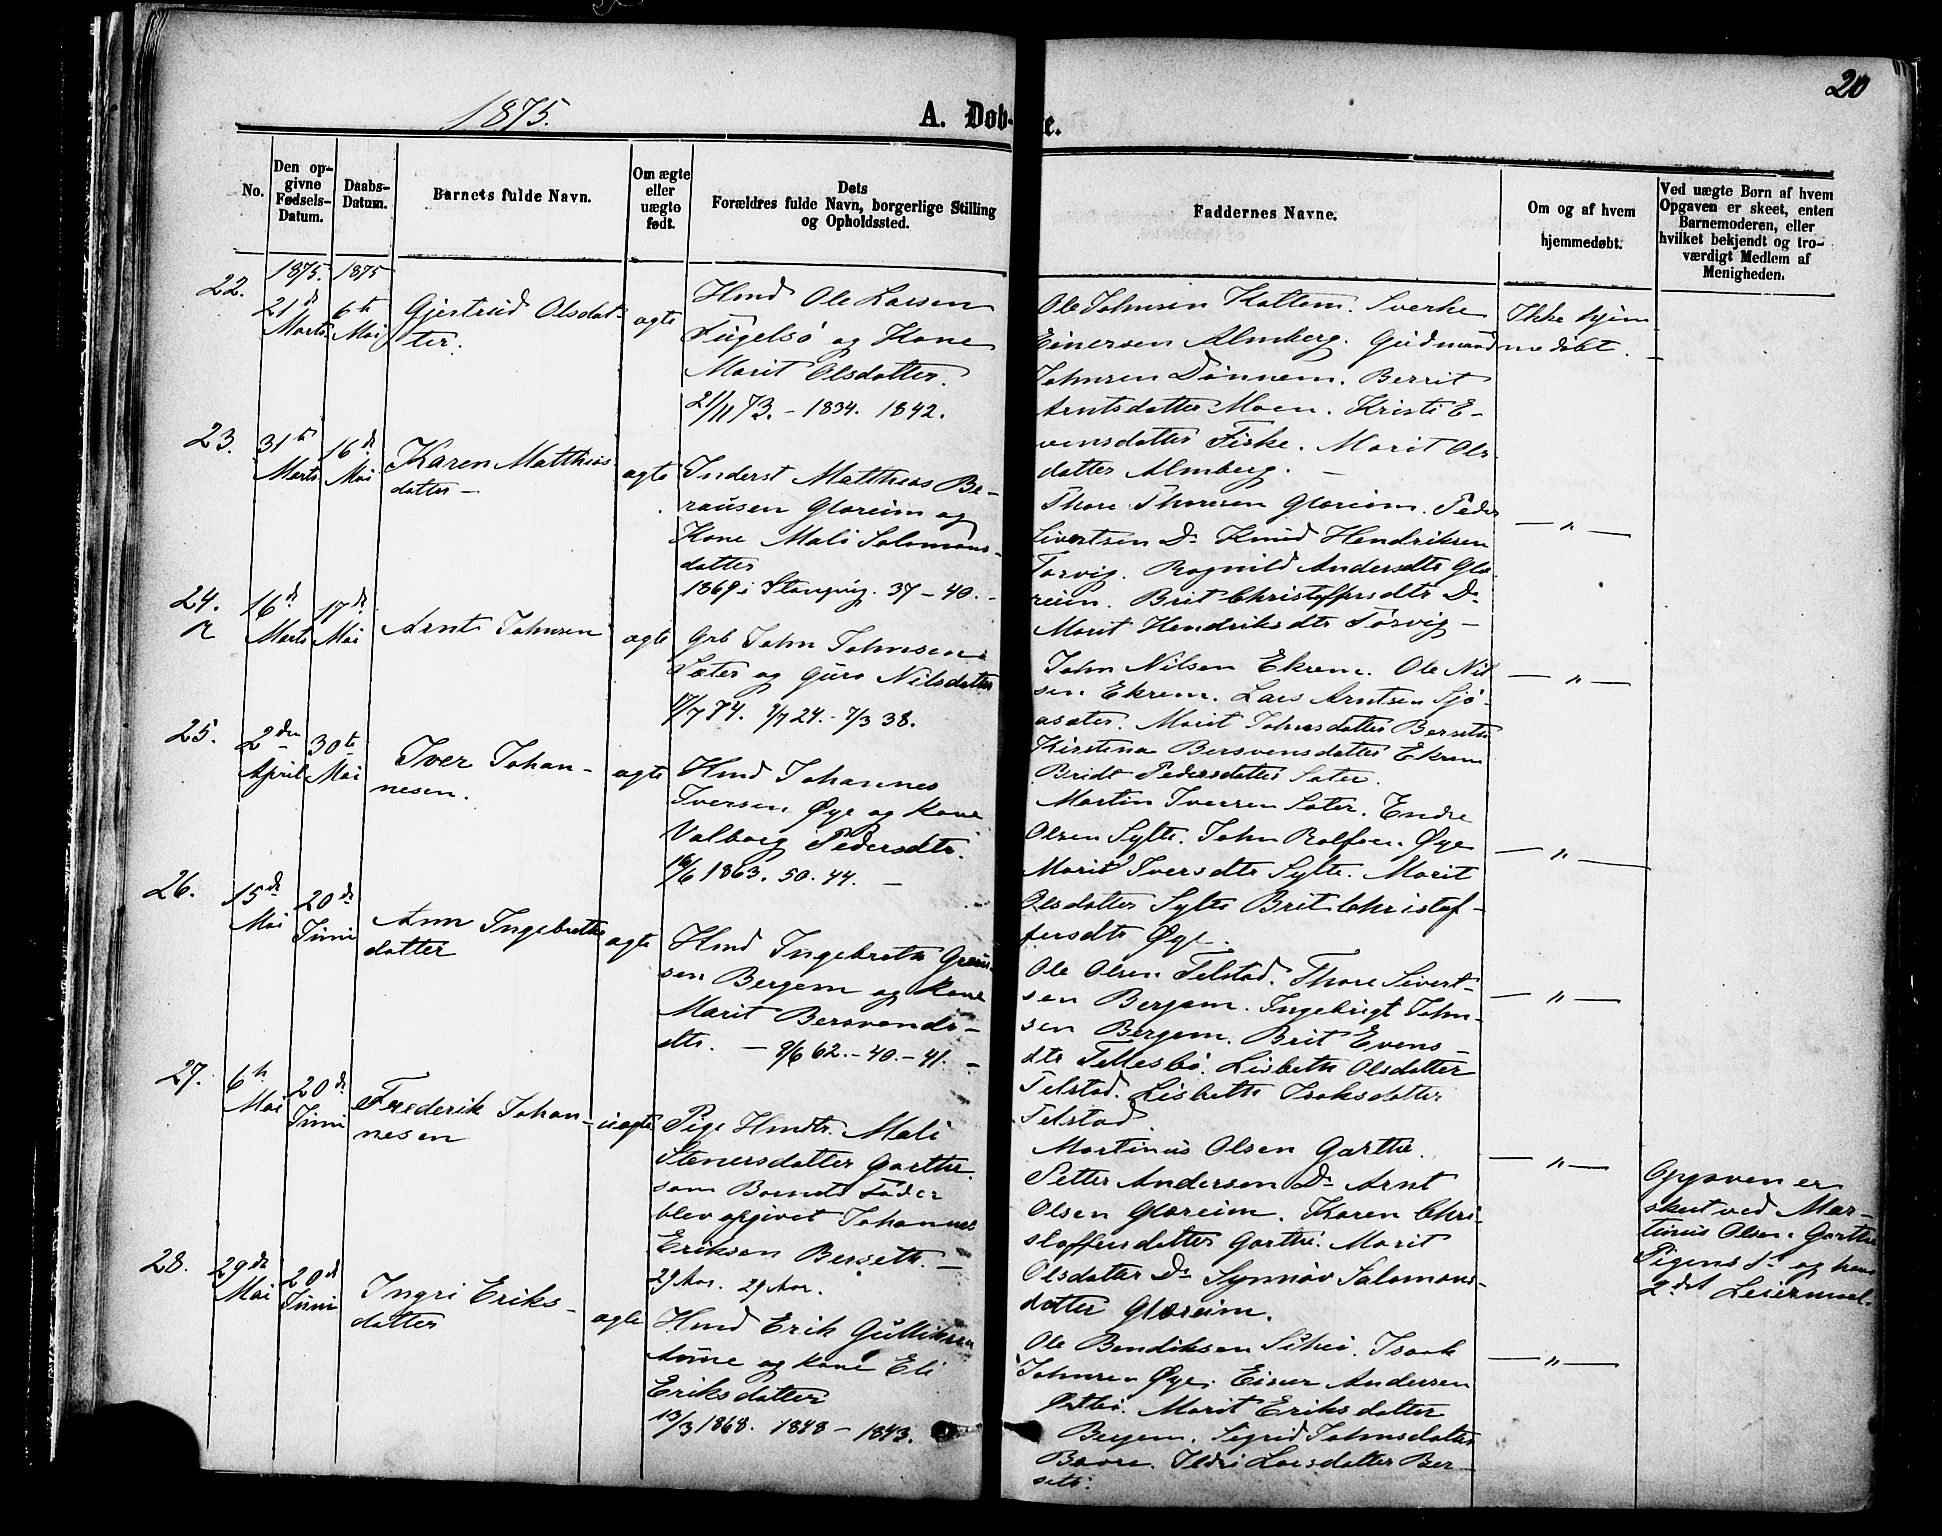 1875.
A. Døb-
te.
20
No.
Den op-
givne
Fødsels-
Datum.
Daabs-
Datum.
Barnets fulde Navn.
Om ægte
eller
uægte
født.
Dets
Forældres fulde Navn, borgerlige Stilling
og Opholdssted.
Faddernes Navne.
Om og af hvem
hjemmedøbt.
Ved uægte Børn af hvem
Opgaven er skeet, enten
Barnemoderen, eller
hvilket bekjendt og tro-
værdigt Medlem af
Menigheden.
22.
1875.
21de
Marts
1875
6te
Mai
Gjertrud Olsdat-
ter.
ægte
Hmd Ole Larsen
Fugelsø og Kone
Marit Olsdatter.
21/11 73. - 1834. 1842.
Ole Johnsen Kattem. Sverke
Einersen Almberg. Gudmund
Johnsen Dønnem. Berrit
Arntsdatter Moen. Kristi E-
vensdatter Fiske. Marit Ols-
datter Almberg. -
Ikke hjem-
medøbt.
23.
31te
Marts
16de
Mai
Karen Matthias
datter -
ægte
Inderst Matthias Be-
rausen Glæreim og
Kone Mali Salomons-
datter
1869 i Stangvig. 37 - 40. -
Thore Thoresen Glæreim. Peder
Sivertsen Do Knud Hendriksen
Torvig. Ragnild Andersdtr Glæ-
reim. Brit Christoffersdtr Do
Marit Hendriksdtr Torvig -
- " -
24.
16de
Marts
17de
Mai
Arnt Johnsen
ægte
Grb John Johnsen
Sæter og Guro Nilsdatter
17/7 74. 2/7 24. - 7/3 38.
John Nilsen Ekrem. Ole Nil-
sen Ekrem. Lars Arntsen Sjø-
asæter. Marit Johnsdatter Berseth
Kirstina Bersvensdatter Ekrem
Bridt Pedersdatter Sæter.
- " -
25.
2den
April
30te
Mai
Iver Johan-
nesen.
ægte
Hmd Johannes
Iversen Øye og Kone
Valborg Pedersdtr.
16/6 1863. 50. 44. -
Martin Iversen Sæter. Endre
Olsen Sylte. John Rolfsen Øye
Marit Iversdtr Sylte. Marit
Olsdatter Sylte Brit Christof-
fersdtr Øye.
- " -
26.
15de
Mai
20de
Juni
Ann Ingebrethe
datter
ægte
Hmd Ingebreth
sen Bergem og Kone
Marit Bersvends-
dtr. - 9/6 62. - 40. - 41. -
Ole Olsen Telstad. Thore Sivert-
sen Bergem. Ingebrigt John-
sen Bergem. Brit Evens-
dtr Tellesbø. Lisbeth Olsdatter
Telstad. Lisbeth Isaksdatter
Telstad.
- " -
27.
6te
Mai
20de
Juni
Frederik Johan-
nesen
uægte
Pige Hmdtr. Mali
Stenersdatter Garthe.
som Barnets Fader
blev opgivet Johannes
Eriksen Berseth. -
29 Aar. 29 Aar.
Martinus Olsen Garthe.
Petter Andersen Do Arnt
Olsen Glæreim. Karen Chri-
stoffersdatter Garthe. Marit
Olsdatter Do Synnøv Salomons-
datter Glæreim.
- " -
Opgaven er
skeet ved Mar-
tinus Olsen Garthe
Pigens 1ste og hans
2det Leiermaal.
28.
29de
Mai
20de
Juni
Ingri Eriks-
datter
ægte
Hmd Erik Gulliksen
Aune og Kone Eli
Eriksdatter
13/3 1868. 1848 - 1843.
Ole Bendiksen Settei. Isaak
Johnsen Øye. Einer Andersen
Marit Eriksdatter
Bergem. Sigrid Johnsdatter
Bævre. Ildri Larsdatter Ber-
seth.
- " -